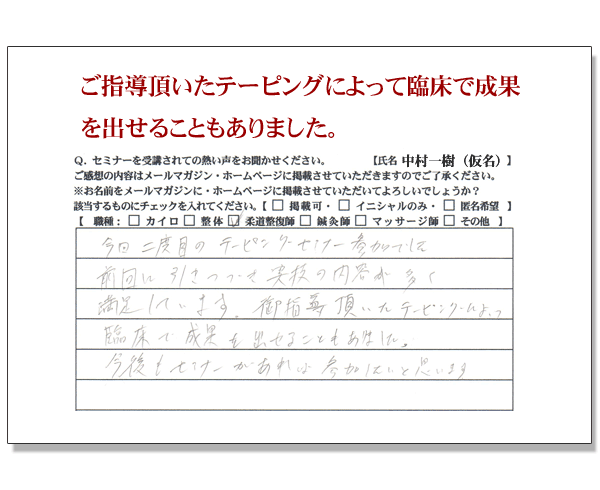 ご指導頂いたテーピングによって臨床で成果
を出せることもありました。
Q. セミナーを受講されての熱い声をお聞かせください。 【氏名 中村一樹（仮名）】
ご感想の内容はメールマガジン・ホームページに掲載させていただきますのでご了承ください。
※お名前をメールマガジンに・ホームページに掲載させていただいてよろしいでしょうか？
該当するものにチェックを入れてください。【 □ 掲載可・ □ イニシャルのみ・ □ 匿名希望 】
【 職種： □ カイロ □ 整体 ☑ 柔道整復師 □ 鍼灸師 □ マッサージ師 □ その他 】
今回二度目のテーピングセミナー参加では
前回に引きつづき実技の内容が多く
満足しています。御指導頂いたテーピングによって
臨床で成果を出せることもありました。
今後もセミナーがあれば参加したいと思います